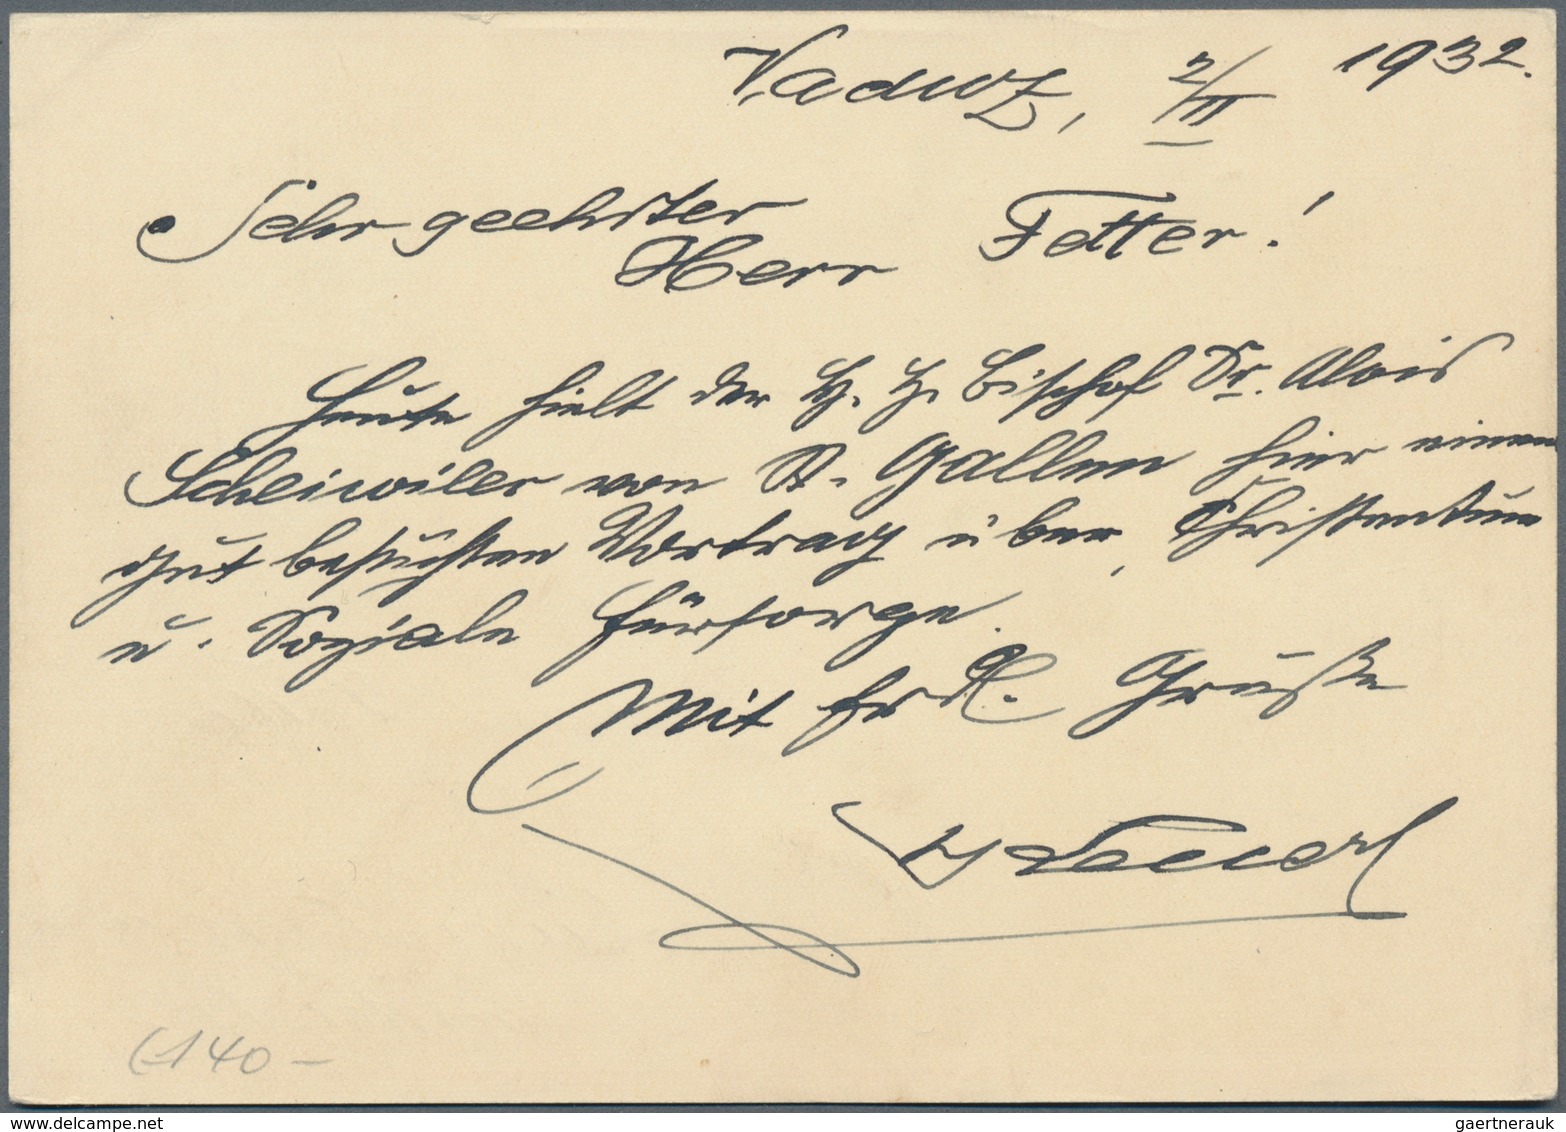 Vaduz, 2/II 1932.
Sehr geehrter
Herr Fetter!
Heute hielt der H. H. Bischof Dr. Alois
Scheiwiler von St. Gallen hier einen
gut besuchten Vortrag über, Christentum
u. Soziale Fürsorge.
Mit frdl. Grüße
140 –
www.delcampe.net
gaertnerauk